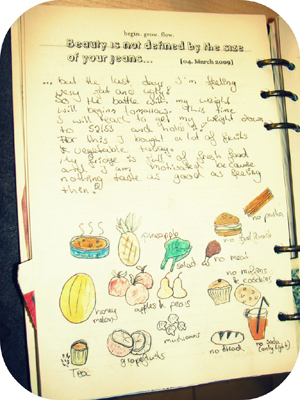 begin. grow. flow.
Beauty is not defined by the size
of your jeans...
[04. March 2009]
... but the last days I'm feeling
very fat and ugly!
So the battle with my weight
will begin tomorrow. This time
I will reach to get my weight down
to and hold it!
For this I bought a lot of fruits
& vegetable today.
My fridge is full of fresh food
and I am motivated because
nothing taste as good as feeling
thin!
no pasta
pineapple
no fast food
salad
no meat
no muffins
& cookies
honey
melon
apples & pears
mushrooms
no soda
(only light)
no bread
Tea
grapefruits